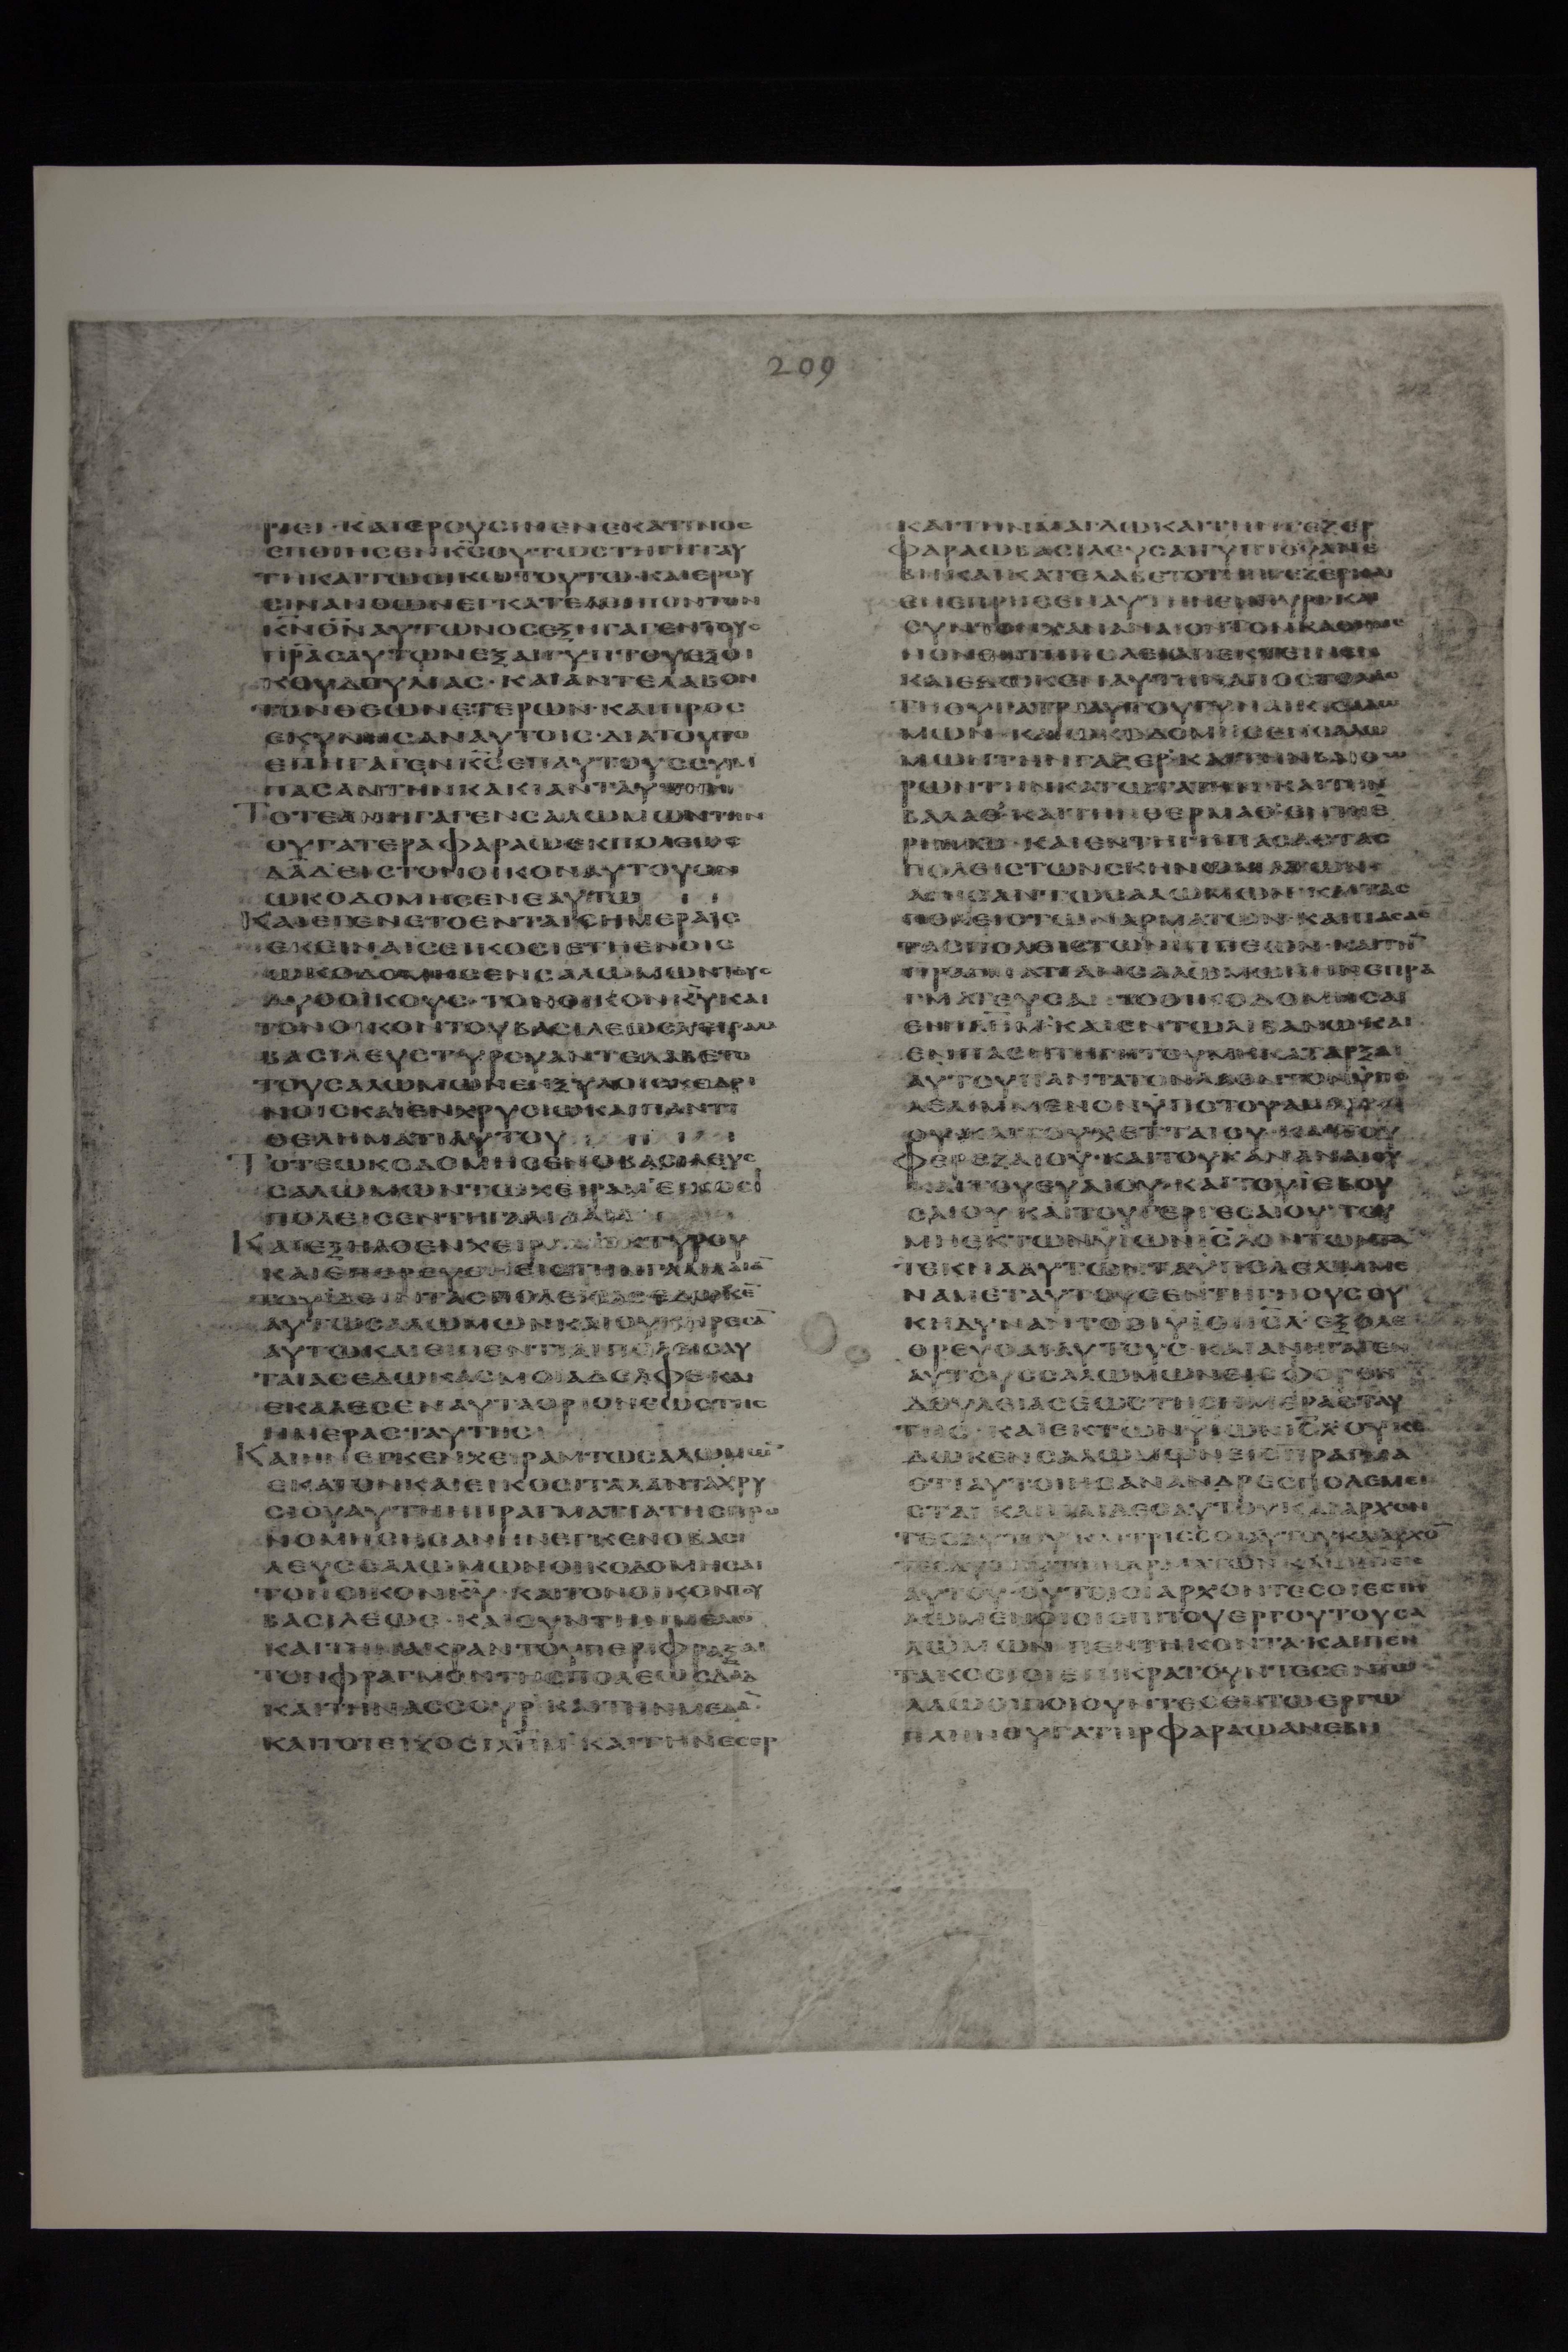 209
212
ΡΙΕΙ · ΚΑΙΕΡΟΥϹΙΝΕΝΕΚΑΤΙΝΟϹ
ΕΠΟΙΗϹΕΝΚ̅Ϲ̅ΟΥΤΩϹΤΗΓΗΤΑΥ
ΤΗΚΑΙΤΩΟΙΚΩΤΟΥΤΩ · ΚΑΙΕΡΟΥ
ϹΙΝΑΝΘΩΝΕΓΚΑΤΕΛΙΠΟΝΤΟΝ
Κ̅Ν̅Θ̅Ν̅ΑΥΤΩΝΟϹΕΞΗΓΑΓΕΝΤΟΥϹ
Π̅Ρ̅Α̅Ϲ̅ΑΥΤΩΝΕΞΑΙΓΥΠΤΟΥΕΞΟΙ
ΚΟΥΔΟΥΛΙΑϹ · ΚΑΙΑΝΤΕΛΑΒΟΝ
ΤΟΝΘΕΩΝΕΤΕΡΩΝ · ΚΑΙΠΡΟϹ
ΕΚΥΝΗϹΑΝΑΥΤΟΙϹ · ΔΙΑΤΟΥΤΟ
ΕΠΗΓΑΓΕΝΚ̅Ϲ̅ΕΠΑΥΤΟΥϹϹΥΜ
ΠΑϹΑΝΤΗΝΚΑΚΙΑΝΤΑΥΤΗΝ
ΤΟΤΕΑΝΗΓΑΓΕΝϹΑΛΩΜΩΝΤΗΝ
ΘΥΓΑΤΕΡΑΦΑΡΑΩΕΚΠΟΛΕΩϹ
Δ̅Α̅Δ̅ΕΙϹΤΟΝΟΙΚΟΝΑΥΤΟΥΟΝ
ΩΚΟΔΟΜΗϹΕΝΕΑΥΤΩ
ΚΑΙΕΓΕΝΕΤΟΕΝΤΑΙϹΗΜΕΡΑΙϹ
ΕΚΕΙΝΑΙϹΕΙΚΟϹΙΕΤΗΕΝΟΙϹ
ΩΚΟΔΟΜΗϹΕΝϹΑΛΩΜΩΝΤΟΥϹ
ΔΥΟΟΙΚΟΥϹ · ΤΟΝΟΙΚΟΝΚ̅Υ̅ΚΑΙ
ΤΟΝΟΙΚΟΝΤΟΥΒΑϹΙΛΕΩϹΧΕΙΡΑΜ
ΒΑϹΙΛΕΥϹΤΥΡΟΥΑΝΤΕΛΑΒΕΤΟ
ΤΟΥϹΑΛΩΜΩΝΕΝΞΥΛΟΙϹΚΕΔΡΙ
ΝΟΙϹΚΑΙΕΝΧΡΥϹΙΩΚΑΙΠΑΝΤΙ
ΘΕΛΗΜΑΤΙΑΥΤΟΥ
ΤΟΤΕΩΚΟΔΟΜΗϹΕΝΟΒΑϹΙΛΕΥϹ
ϹΑΛΩΜΩΝΤΩΧΕΙΡΑΜΕΙΚΟϹΙ
ΠΟΛΕΙϹΕΝΤΗΓΑΛΙΛΑΙΑ
ΚΑΙΕΞΗΛΘΕΝΧΕΙΡΑΜΕΚΤΥΡΟΥ
ΚΑΙΕΠΟΡΕΥΘΗΕΙϹΤΗΝΓΑΛΙΛΑΙΑ̅
ΤΟΥΙΔΕΙΝΤΑϹΠΟΛΕΙϹΑϹΕΔΩΚΕ̅
ΑΥΤΩϹΑΛΩΜΩΝΚΑΙΟΥΚΗΡΕϹΑ̅
ΑΥΤΩΚΑΙΕΙΠΕΝΤΙΑΙΠΟΛΕΙϹΑΥ
ΤΑΙΑϹΕΔΩΚΑϹΜΟΙΑΔΕΛΦΕΚΑΙ
ΕΚΑΛΕϹΕΝΑΥΤΑΟΡΙΟΝΕΩϹΤΗϹ
ΗΜΕΡΑϹΤΑΥΤΗϹ
ΚΑΙΗΝΕΓΚΕΝΧΕΙΡΑΜΤΩϹΑΛΩΜΩ̅
ΕΚΑΤΟΝΚΑΙΕΙΚΟϹΙΤΑΛΑΝΤΑΧΡΥ
ϹΙΟΥΑΥΤΗΗΠΡΑΓΜΑΤΙΑΤΗϹΠΡΟ
ΝΟΜΗϹΗϹΑΝΗΝΕΓΚΕΝΟΒΑϹΙ
ΛΕΥϹϹΑΛΩΜΩΝΟΙΚΟΔΟΜΗϹΑΙ
ΤΟΝΟΙΚΟΝΚ̅Υ̅ · ΚΑΙΤΟΝΟΙΚΟΝΤΟΥ
ΒΑϹΙΛΕΩϹ · ΚΑΙϹΥΝΤΗΝΜΕΛΩ
ΚΑΙΤΗΝΑΚΡΑΝΤΟΥΠΕΡΙΦΡΑΞΑΙ
ΤΟΝΦΡΑΓΜΟΝΤΗϹΠΟΛΕΩϹΔ̅Α̅Δ̅
ΚΑΙΤΗΝΑϹϹΟΥΡ · ΚΑΙΤΗΝΜΕΔΑ̅
ΚΑΙΤΟΤΕΙΧΟϹΙ̅Λ̅Η̅Μ̅ · ΚΑΙΤΗΝΕϹΕΡ
ΚΑΙΤΗΝΜΑΓΔΩΚΑΙΤΗΝΓΕΖΕΡ
ΦΑΡΑΩΒΑϹΙΛΕΥϹΑΙΓΥΠΤΟΥΑΝΕ
ΒΗΚΑΙΚΑΤΕΛΑΒΕΤΟΤΗΝΓΕΖΕΡΚΑΙ
ΕΝΕΠΡΗϹΕΝΑΥΤΗΝΕΝΠΥΡΙΚΑΙ
ϹΥΝΤΟΝΧΑΝΑΝΑΙΟΝΤΟΝΚΑΘΗΜΕ
ΝΟΝΕΝΤΗΠΟΛΕΙΑΠΕΚΤΕΙΝΕΝ
ΚΑΙΕΔΩΚΕΝΑΥΤΗΝΑΠΟϹΤΟΛΑϹ
ΤΗΘΥΓΑΤΡΙΑΥΤΟΥΓΥΝΑΙΚΙϹΑΛΩ
ΜΩΝ · ΚΑΙΩΚΟΔΟΜΗϹΕΝϹΑΛΩ
ΜΩΝΤΗΝΓΑΖΕΡ · ΚΑΙΤΗΝΒΑΙΘΩ
ΡΩΝΤΗΝΚΑΤΩΤΑΤΗΝ · ΚΑΙΤΗΝ
ΒΑΛΑΘ · ΚΑΙΤΗΝΘΕΡΜΑΘ · ΕΝΤΗΕ
ΡΗΜΩ · ΚΑΙΕΝΤΗΓΗΠΑϹΑϹΤΑϹ
ΠΟΛΕΙϹΤΩΝϹΚΗΝΩΜΑΤΩΝ
ΑΙΗϹΑΝΤΩϹΑΛΩΜΩΝ · ΚΑΙΤΑϹ
ΠΟΛΕΙϹΤΩΝΑΡΜΑΤΩΝ · ΚΑΙΠΑϹΑϹ
ΤΑϹΠΟΛΕΙϹΤΩΝΙΠΠΕΩΝ · ΚΑΙΤΗ̅
ΠΡΑΓΜΑΤΙΑΝϹΑΛΩΜΩΝΗΝΕΠΡΑ
ΓΜΑΤΕΥϹΑΙΤΟΟΙΚΟΔΟΜΗϹΑΙ
ΕΝΙ̅Λ̅Η̅Μ̅ · ΚΑΙΕΝΤΩΛΙΒΑΝΩ · ΚΑΙ
ΕΝΠΑϹΗΤΗΓΗΤΟΥΜΗΚΑΤΑΡΞΑΙ
ΑΥΤΟΥΠΑΝΤΑΤΟΝΛΑΟΝΤΟΝΥΠΟ
ΛΕΛΙΜΜΕΝΟΝΥΠΟΤΟΥΑΜΟΡΡΑΙ
ΟΥ · ΚΑΙΤΟΥΧΕΤΤΑΙΟΥ · ΚΑΙΤΟΥ
ΦΕΡΕΖΑΙΟΥ · ΚΑΙΤΟΥΚΑΝΑΝΑΙΟΥ
ΚΑΙΤΟΥΕΥΑΙΟΥ · ΚΑΙΤΟΥΙΕΒΟΥ
ϹΑΙΟΥΚΑΙΤΟΥΓΕΡΓΕϹΑΙΟΥ · ΤΟΥ
ΜΗΕΚΤΩΝΥΙΩΝΙ̅Ϲ̅Λ̅ΟΝΤΩΝΤΑ
ΤΕΚΝΑΑΥΤΩΝΤΑΥΠΟΛΕΛΙΜΜΕ
ΝΑΜΕΤΑΥΤΟΥϹΕΝΤΗΓΗΟΥϹΟΥ
ΚΗΔΥΝΑΝΤΟΟΙΥΙΟΙΙ̅Ϲ̅Λ̅ΕΞΟΛΕ
ΘΡΕΥϹΑΙΑΥΤΟΥϹ · ΚΑΙΑΝΗΓΑΓΕΝ
ΑΥΤΟΥϹϹΑΛΩΜΩΝΕΙϹΦΟΡΟΝ
ΔΟΥΛΕΙΑϹΕΩϹΤΗϹΗΜΕΡΑϹΤΑΥ
ΤΗϹ · ΚΑΙΕΚΤΩΝΥΙΩΝΙ̅Ϲ̅Λ̅ΟΥΚΕ
ΔΩΚΕΝϹΑΛΩΜΩΝΕΙϹΠΡΑΓΜΑ
ΟΤΙΑΥΤΟΙΗϹΑΝΑΝΔΡΕϹΠΟΛΕΜΕΙ
ϹΤΑΙΚΑΙΠΑΙΔΕϹΑΥΤΟΥΚΑΙΑΡΧΟΝ
ΤΕϹΑΥΤΟΥΚΑΙΤΡΙϹϹΟΙΑΥΤΟΥΚΑΙΑΡΧΟ̅
ΤΕϹΑΥΤΟΥΤΩΝΑΡΜΑΤΩΝΚΑΙΙΠΠΕΙϹ
ΑΥΤΟΥ · ΟΥΤΟΙΟΙΑΡΧΟΝΤΕϹΟΙΕϹΤΗ
ΛΩΜΕΝΟΙΟΙΕΠΙΤΟΥΕΡΓΟΥΤΟΥϹΑ
ΛΩΜΩΝ · ΠΕΝΤΗΚΟΝΤΑ · ΚΑΙΠΕΝ
ΤΑΚΟϹΙΟΙΕΠΙΚΡΑΤΟΥΝΤΕϹΕΝΤΩ
ΛΑΩΟΙΠΟΙΟΥΝΤΕϹΕΝΤΩΕΡΓΩ
ΠΛΗΝΘΥΓΑΤΗΡΦΑΡΑΩΑΝΕΒΗ